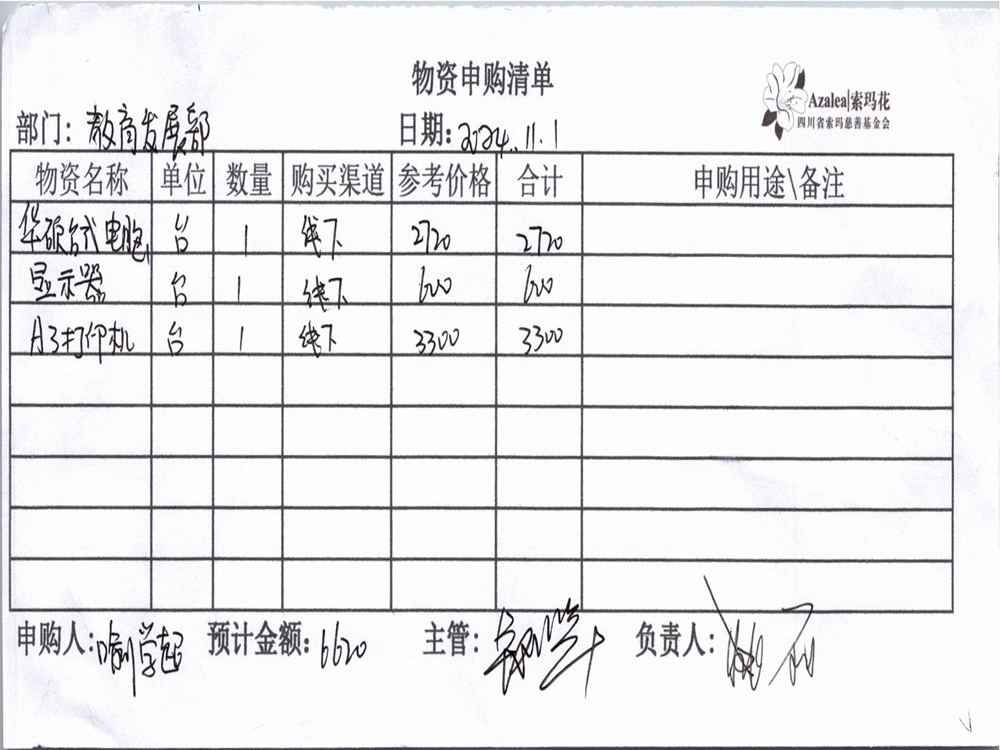 物资申购清单
Azalea|索玛花
四川省索玛慈善基金会
部门：教育发展部 日期：2024.11.1
物资名称 单位 数量 购买渠道 参考价格 合计 申购用途\备注
华硕台式电脑 台 1 线下 2720 2720
显示器 台 1 线下 600 600
A3打印机 台 1 线下 3300 3300
申购人： 预计金额：6620 主管： 负责人：